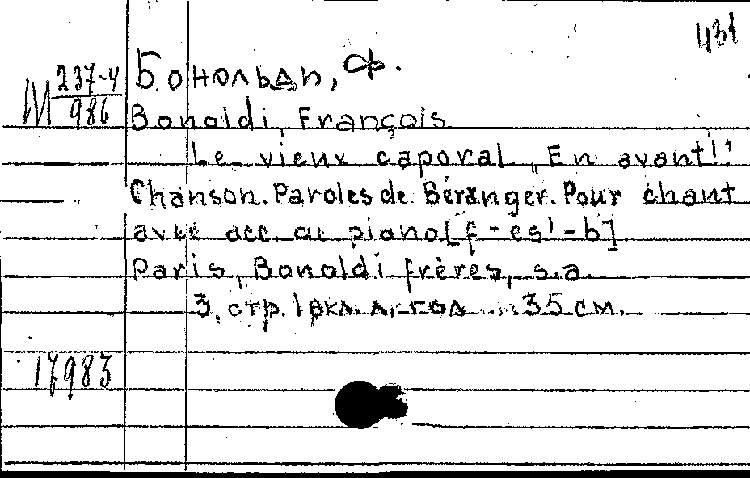 431
М 237-4
986
Бональди, Ф.
Bonoldi, François
Le vieux caporal „En avant!"
Chanson. Paroles de Béranger. Pour chant
avec acc. de piano [f-es¹-b]
Paris, Bonoldi frères, s.a.
3, стр. 1 вкл. л. 35 см.
17983